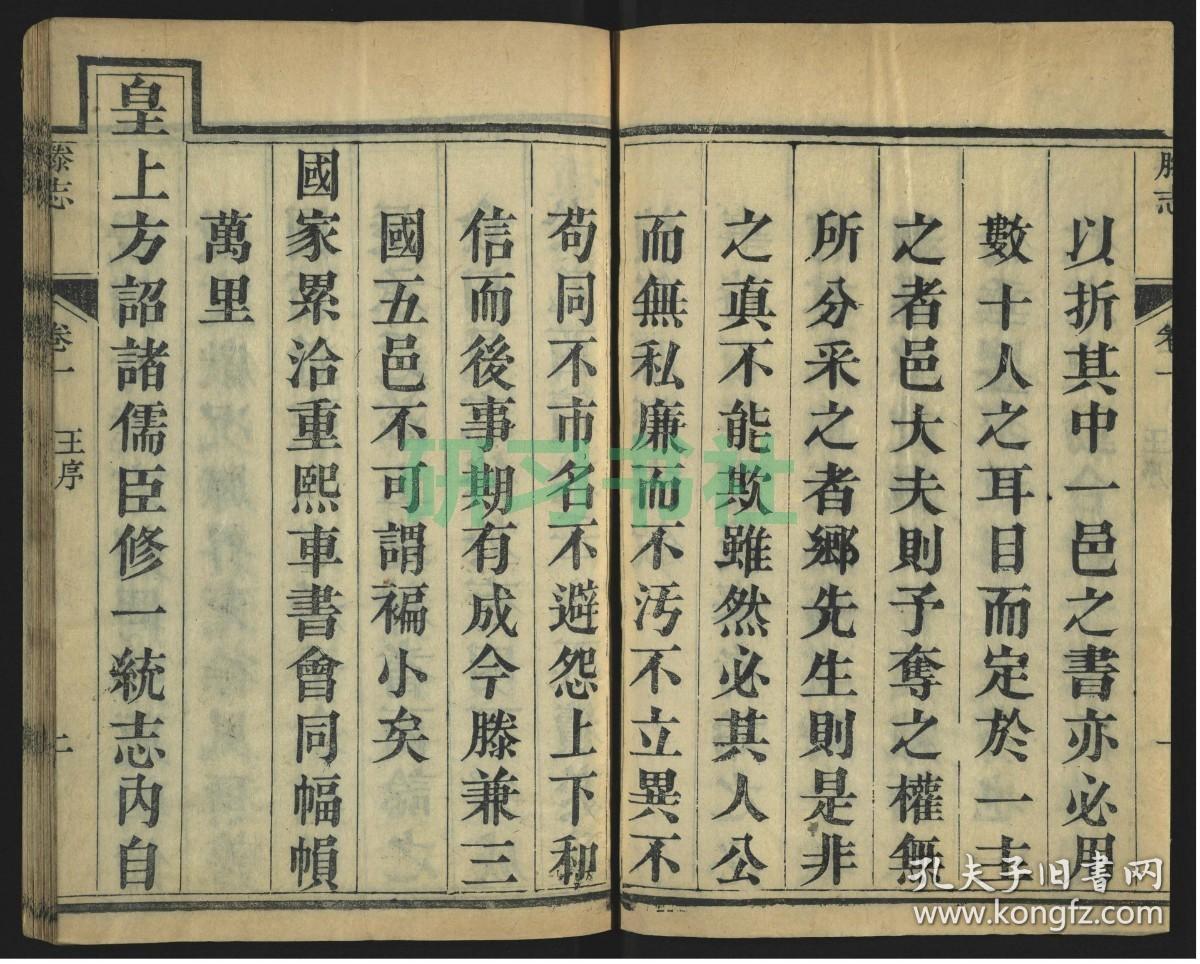 滕志
卷一
以折其中一邑之書亦必用
數十人之耳目而定於一主
之者邑大夫則予奪之權無
所分采之者鄉先生則是非
之真不能欺雖然必其人公
而無私廉而不汚不立異不
苟同不市名不避怨上下和
信而後事期有成今滕兼三
國五邑不可謂褊小矣
國家累洽重熙車書會同幅幀
萬里
皇上方詔諸儒臣修一統志內自
滕志
卷一
王序
二
研习书社
孔夫子旧书网
www.kongfz.com